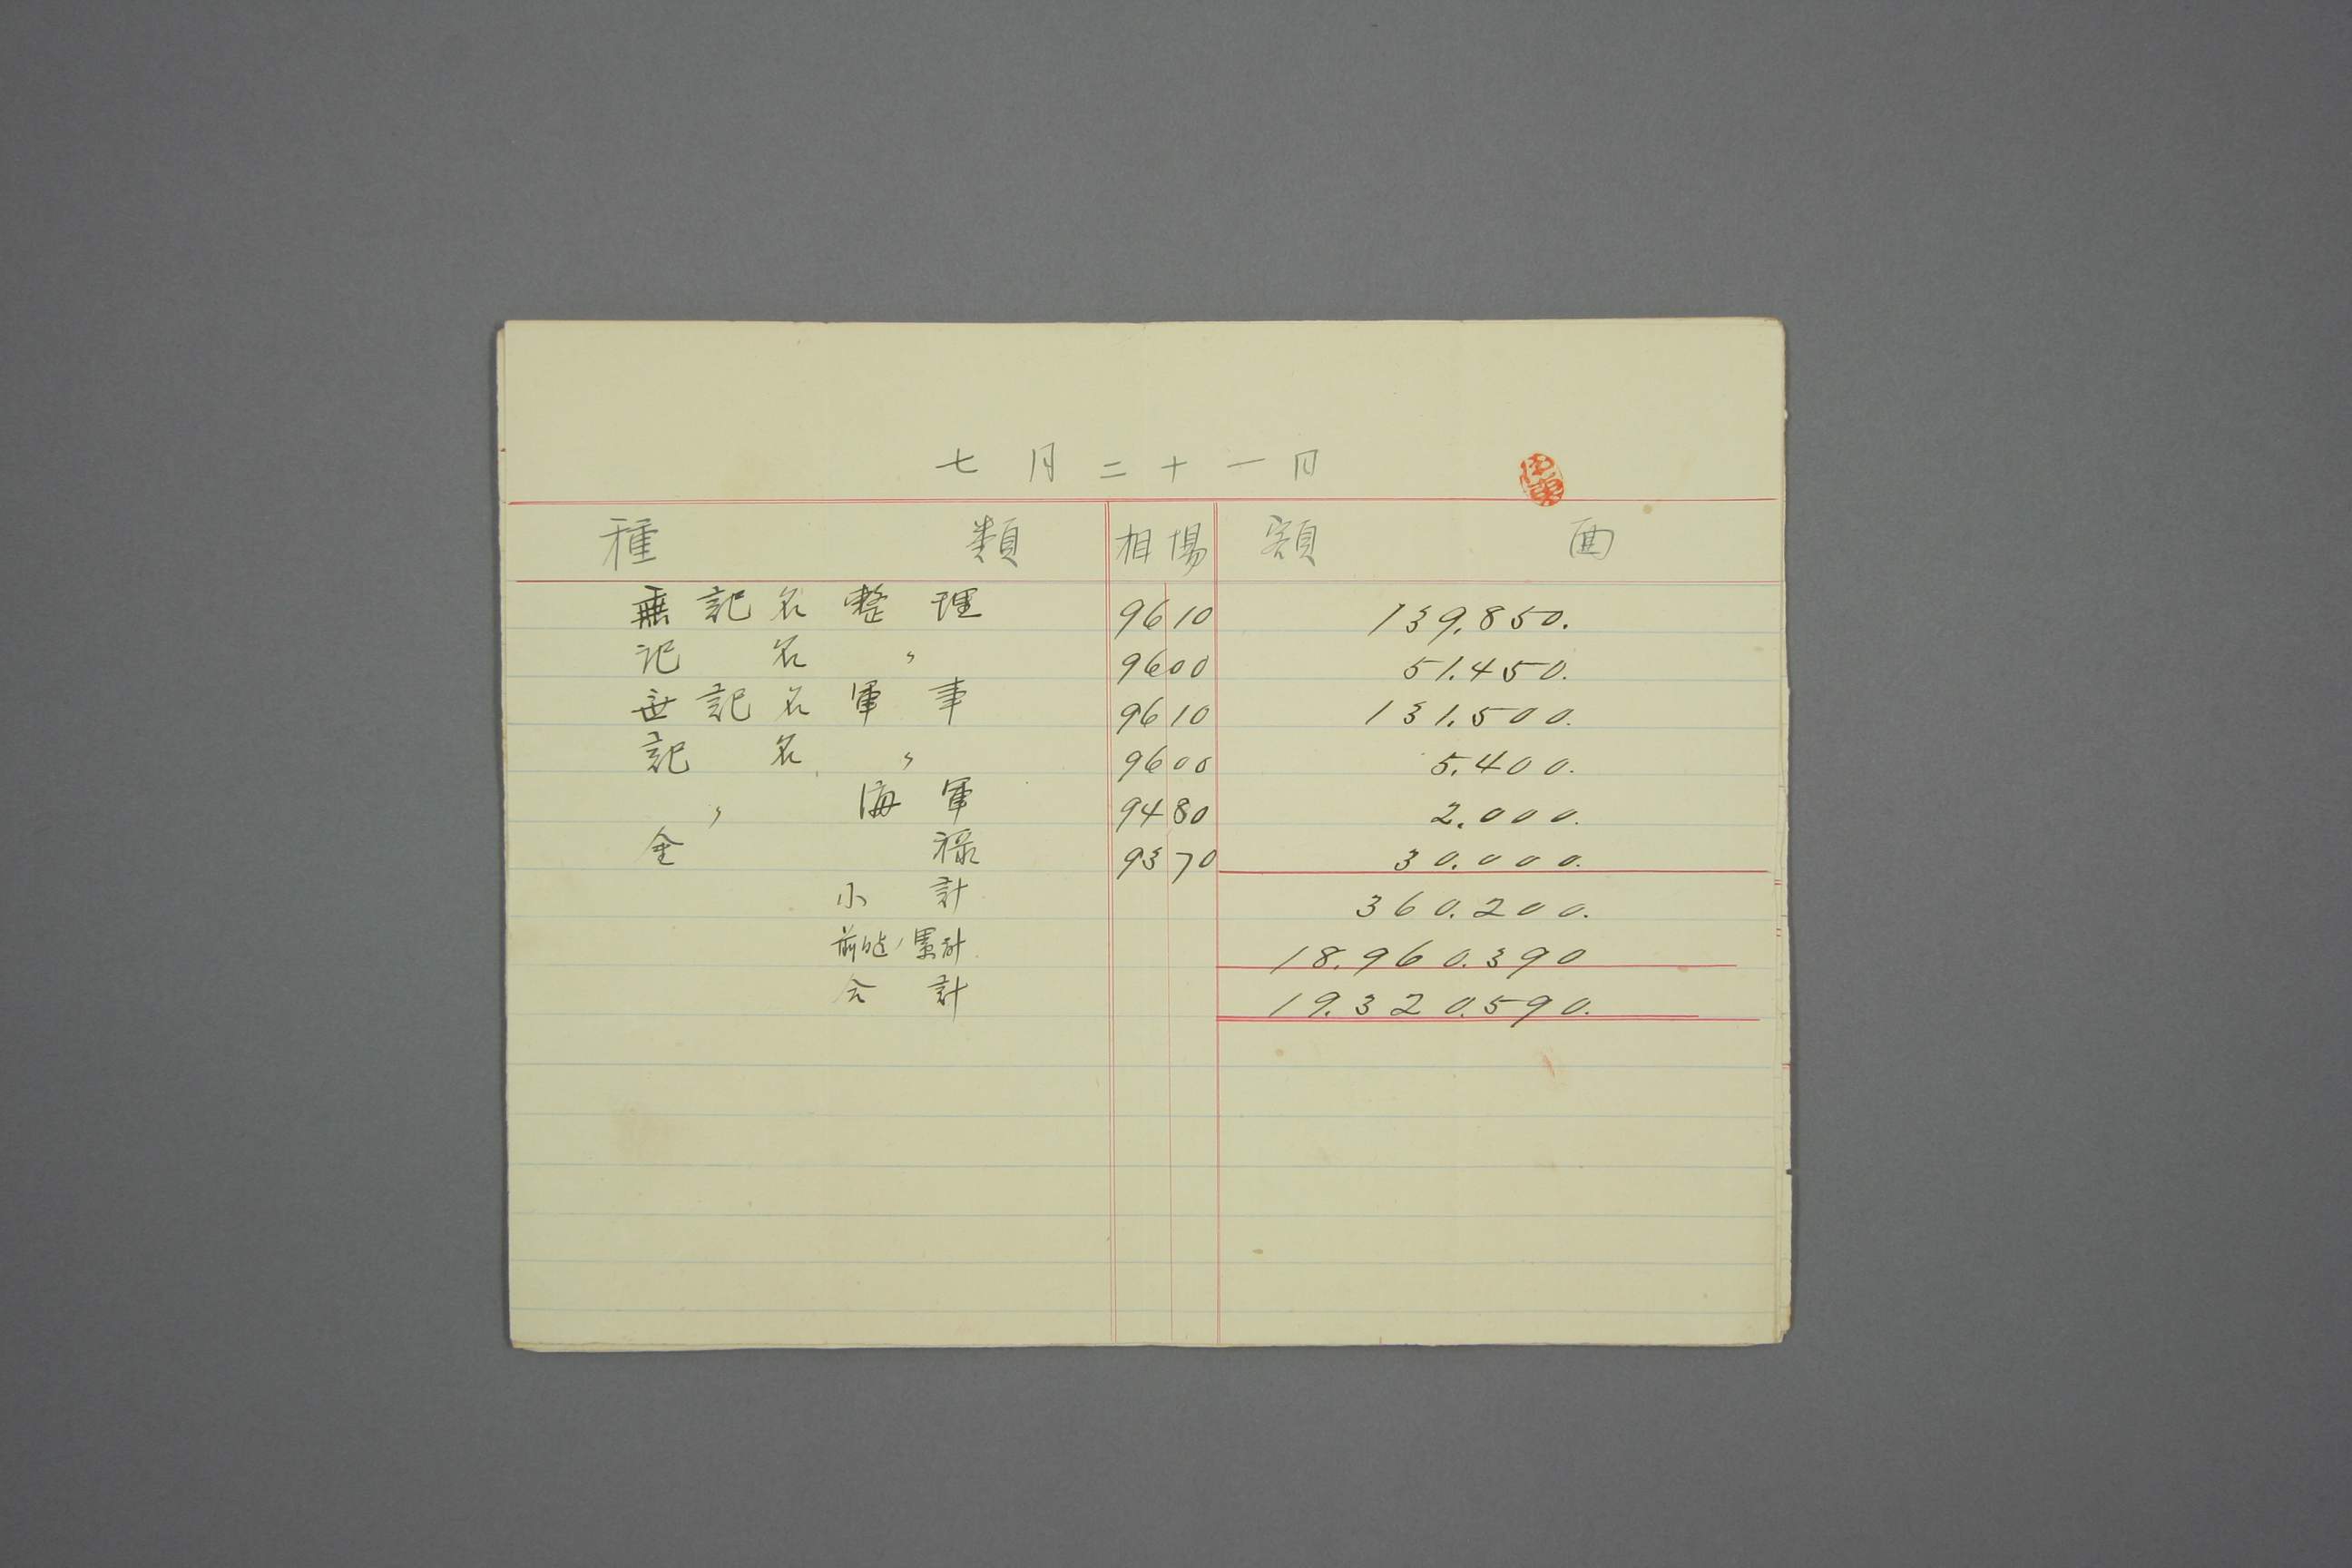 七月二十一日
種類 相場 額面
無記名整理 9610 139.850.
記名〃 9600 51.450.
無記名軍事 9610 131.500.
記名〃 9600 5.400.
〃海軍 9480 2.000.
金禄 9370 30.000.
小計 360.200.
前日迄ノ累計 18.960.390
合計 19.320.590.